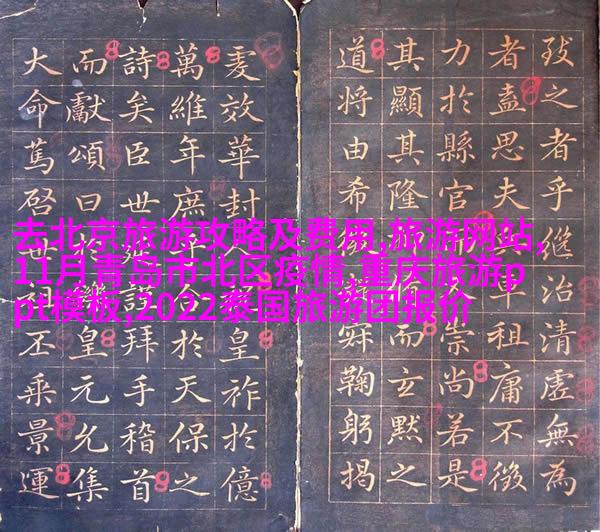 去北京旅游攻略及费用,旅游网站,
11月青岛市北区疫情,重庆旅游p
pt模板,2022泰国旅游团报价
致之者乎繼治清虛無為
者盍思夫祖庸不徵
力於縣官崇尚若是
其顯其隆而玄默之
道將由希鞠躬揭
效華封人皇祚於億
萬維年庶於天保之
詩矣臣世拜手稽首
而獻頌曰於皇元允集
大命篤啓世祖丕乘景運